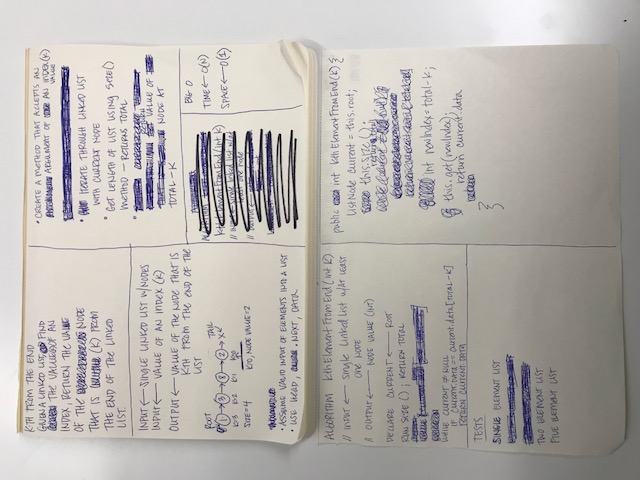 KTH FROM THE END
GIVEN A LINKED LIST, FIND
THE VALUE OF AN
INDEX, RETURN THE VALUE
OF THE NODE
THAT IS (K) FROM
THE END OF THE LINKED
LIST.
INPUT ← SINGLE LINKED LIST W/NODES
INPUT ← VALUE OF AN INDEX (K)
OUTPUT ← VALUE OF THE NODE THAT IS
KTH FROM THE END OF THE
LIST
ROOT
TAIL
1 → 3 → 8 → 2 → X
K=3 K=2 K=1 K=0
SIZE = 4
K=0, NODE VALUE = 2
• ASSUME VALID INPUT OF ELEMENTS INTO A LIST
• USE HEAD, .NEXT, DATA
• CREATE A METHOD THAT ACCEPTS AN
ARGUMENT OF AN INDEX(K)
VALUE
ITERATE THROUGH LINKED LIST
WITH CURRENT NODE
• GET LENGTH OF LIST USING SIZE()
METHOD – RETURNS TOTAL
•
RETURN
VALUE OF
NODE AT
TOTAL – K
KthElementFromEnd (int k)
// INPUT ← Single linked list w/at
least one node
// OUTPUT ←
BIG O
TIME ← O(N)
SPACE ← O(1)
ALGORITHM KthElementFromEnd (int k)
// INPUT ← SINGLE LINKED LIST W/AT LEAST
ONE NODE
// OUTPUT ← NODE VALUE (INT)
DECLARE CURRENT ← ROOT
RUN SIZE(); RETURN TOTAL
WHILE CURRENT ≠ NULL
IF CURRENT.DATA == CURRENT.DATA[TOTAL-K]
RETURN CURRENT.DATA
TESTS
SINGLE ELEMENT LIST
TWO ELEMENT LIST
FIVE ELEMENT LIST
public int KthElementFromEnd(k) {
ListNode current = this.root;
this.size();
return total;
int newIndex = total-k;
this.get(newIndex);
return current.data
}